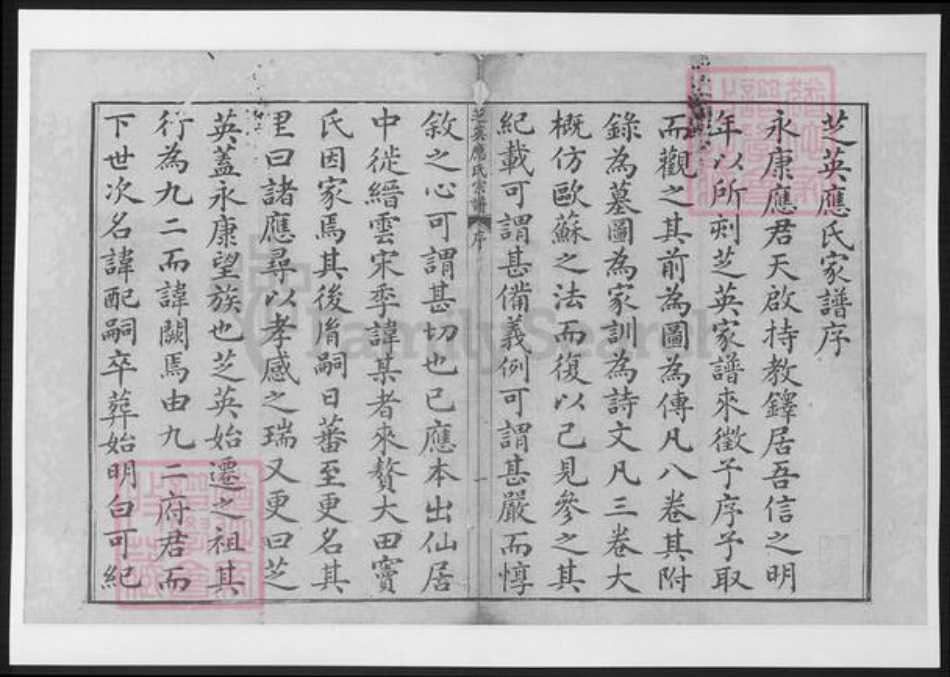 芝英應氏家譜序
永康應君天啟持教鐸居吾信之明
年以所刻芝英家譜來徵予序予取
而觀之其前為圖為傳凡八卷其附
錄為墓圖為家訓為詩文凡三卷大
概仿歐蘇之法而復以己見參之其
紀載可謂甚備義例可謂甚嚴而惇
芝英應氏宗譜 序
一
敘之心可謂甚切也已應本出仙居
中徙縉雲宋季諱某者來贅大田竇
氏因家焉其後胤嗣日蕃至更名其
里曰諸應尋以孝感之瑞又更曰芝
英蓋永康望族也芝英始遷之祖其
行為九二而諱闕焉由九二府君而
下世次名諱配嗣卒葬始明白可紀
FamilySearch